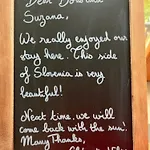 Dear
Suzana,
We really enjoyed our
stay here. This side
of Slovenia is very
beautiful!
Next time, we will
come back with the sun!
Many Thanks,